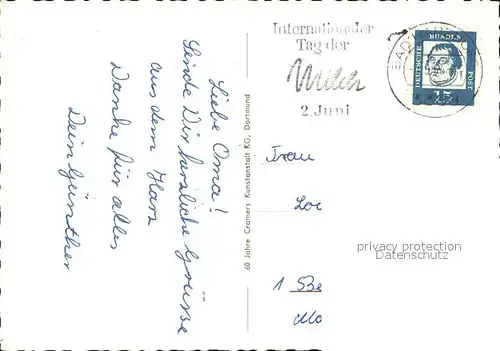 Internationaler
Tag der
Milch
2. Juni
BAD
DEUTSCHE BUNDES
POST
15
Liebe Oma!
Sende Dir herzliche Grüsse
aus dem Harz
Danke für alles
Dein Günther
60 Jahre Cramers Kunstanstalt KG, Dortmund
Frau
Lor
1 Be
Mo
privacy protection
Datenschutz